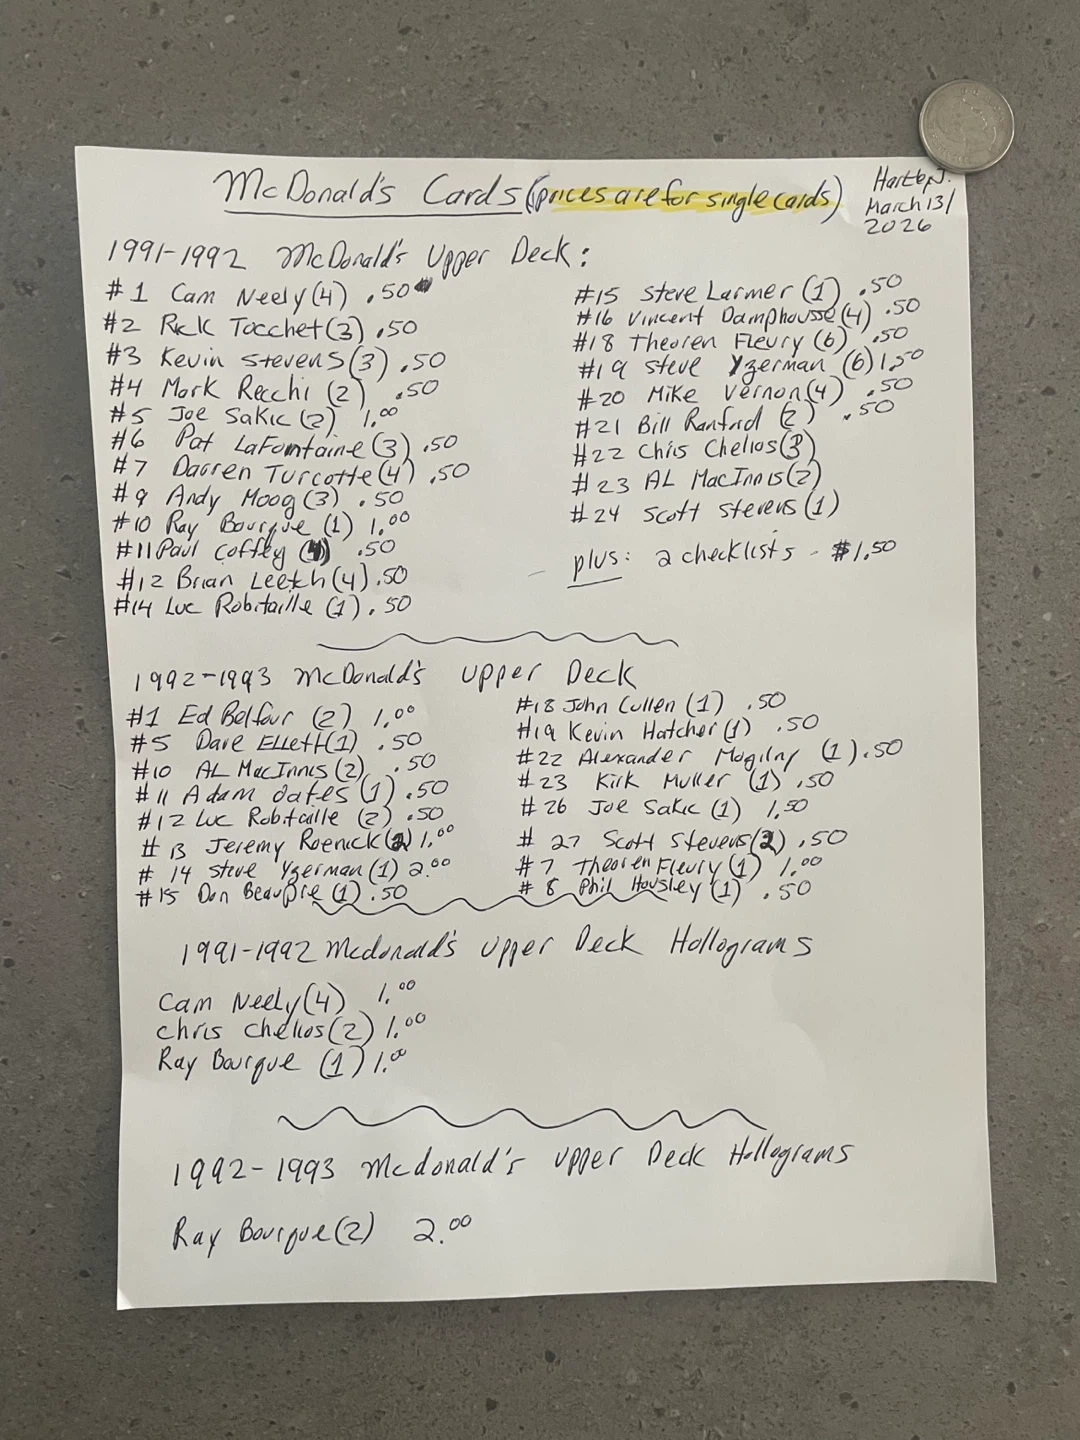 McDonald's Cards (prices are for single cards)
March 13/
2026
1991-1992 McDonald's Upper Deck:
#1 Cam Neely (4) .50
#2 Rick Tocchet (3) .50
#3 Kevin Stevens (3) .50
#4 Mark Recchi (2) .50
#5 Joe Sakic (2) 1.00
#6 Pat LaFontaine (3) .50
#7 Darren Turcotte (4) .50
#9 Andy Moog (3) .50
#10 Ray Bourque (1) 1.00
#11 Paul Coffey .50
#12 Brian Leetch (4) .50
#14 Luc Robitaille (1) .50
#15 Steve Larmer (1) .50
#16 Vincent Damphousse (4) .50
#18 Theoren Fleury (6) .50
#19 Steve Yzerman (6) 1.50
#20 Mike Vernon (4) .50
#21 Bill Ranford (2) .50
#22 Chris Chelios (3)
#23 AL MacInnis (2)
#24 Scott Stevens (1)
plus: 2 checklists - $1.50
1992-1993 McDonald's Upper Deck
#1 Ed Belfour (2) 1.00
#5 Dave Ellett (1) .50
#10 AL MacInnis (2) .50
#11 Adam Oates (1) .50
#12 Luc Robitaille (2) .50
#13 Jeremy Roenick (2) 1.00
#14 Steve Yzerman (1) 2.00
#15 Don Beaupre (1) .50
#18 John Cullen (1) .50
#19 Kevin Hatcher (1) .50
#22 Alexander Mogilny (1) .50
#23 Kirk Muller (1) .50
#26 Joe Sakic (1) 1.50
#27 Scott Stevens (2) .50
#7 Theoren Fleury (1) 1.00
#8 Phil Housley (1) .50
1991-1992 Mcdonald's Upper Deck Hollograms
Cam Neely (4) 1.00
Chris Chelios (2) 1.00
Ray Bourque (1) 1.00
1992-1993 Mcdonald's Upper Deck Hollograms
Ray Bourque (2) 2.00